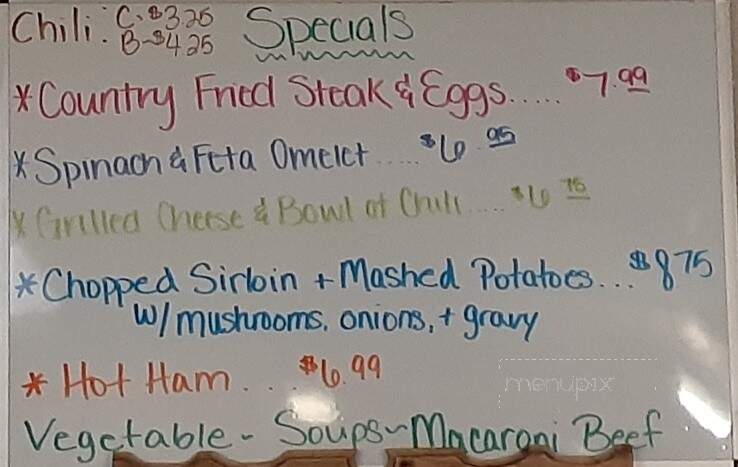 Chili: C-$3.25 Specials
B-$4.25
*Country Fried Steak & Eggs..... $7.99
*Spinach & Feta Omelet ..... $6.95
*Grilled Cheese & Bowl of Chili .... $6.75
*Chopped Sirloin + Mashed Potatoes... $8.75
w/mushrooms, onions, + gravy
* Hot Ham... $6.99
menupix
Vegetable - Soups ~ Macaroni Beef